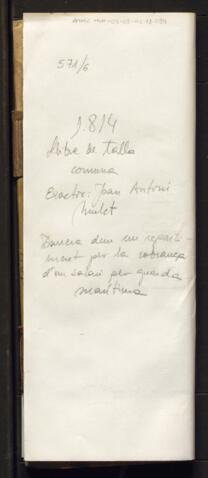 571/6
1.814
Llibre de talla
comuna
Exactor: Joan Antoni
Mulet
Darrera d'ell un reparti-
ment per la cobrança
d'un salari per guarda
marítima